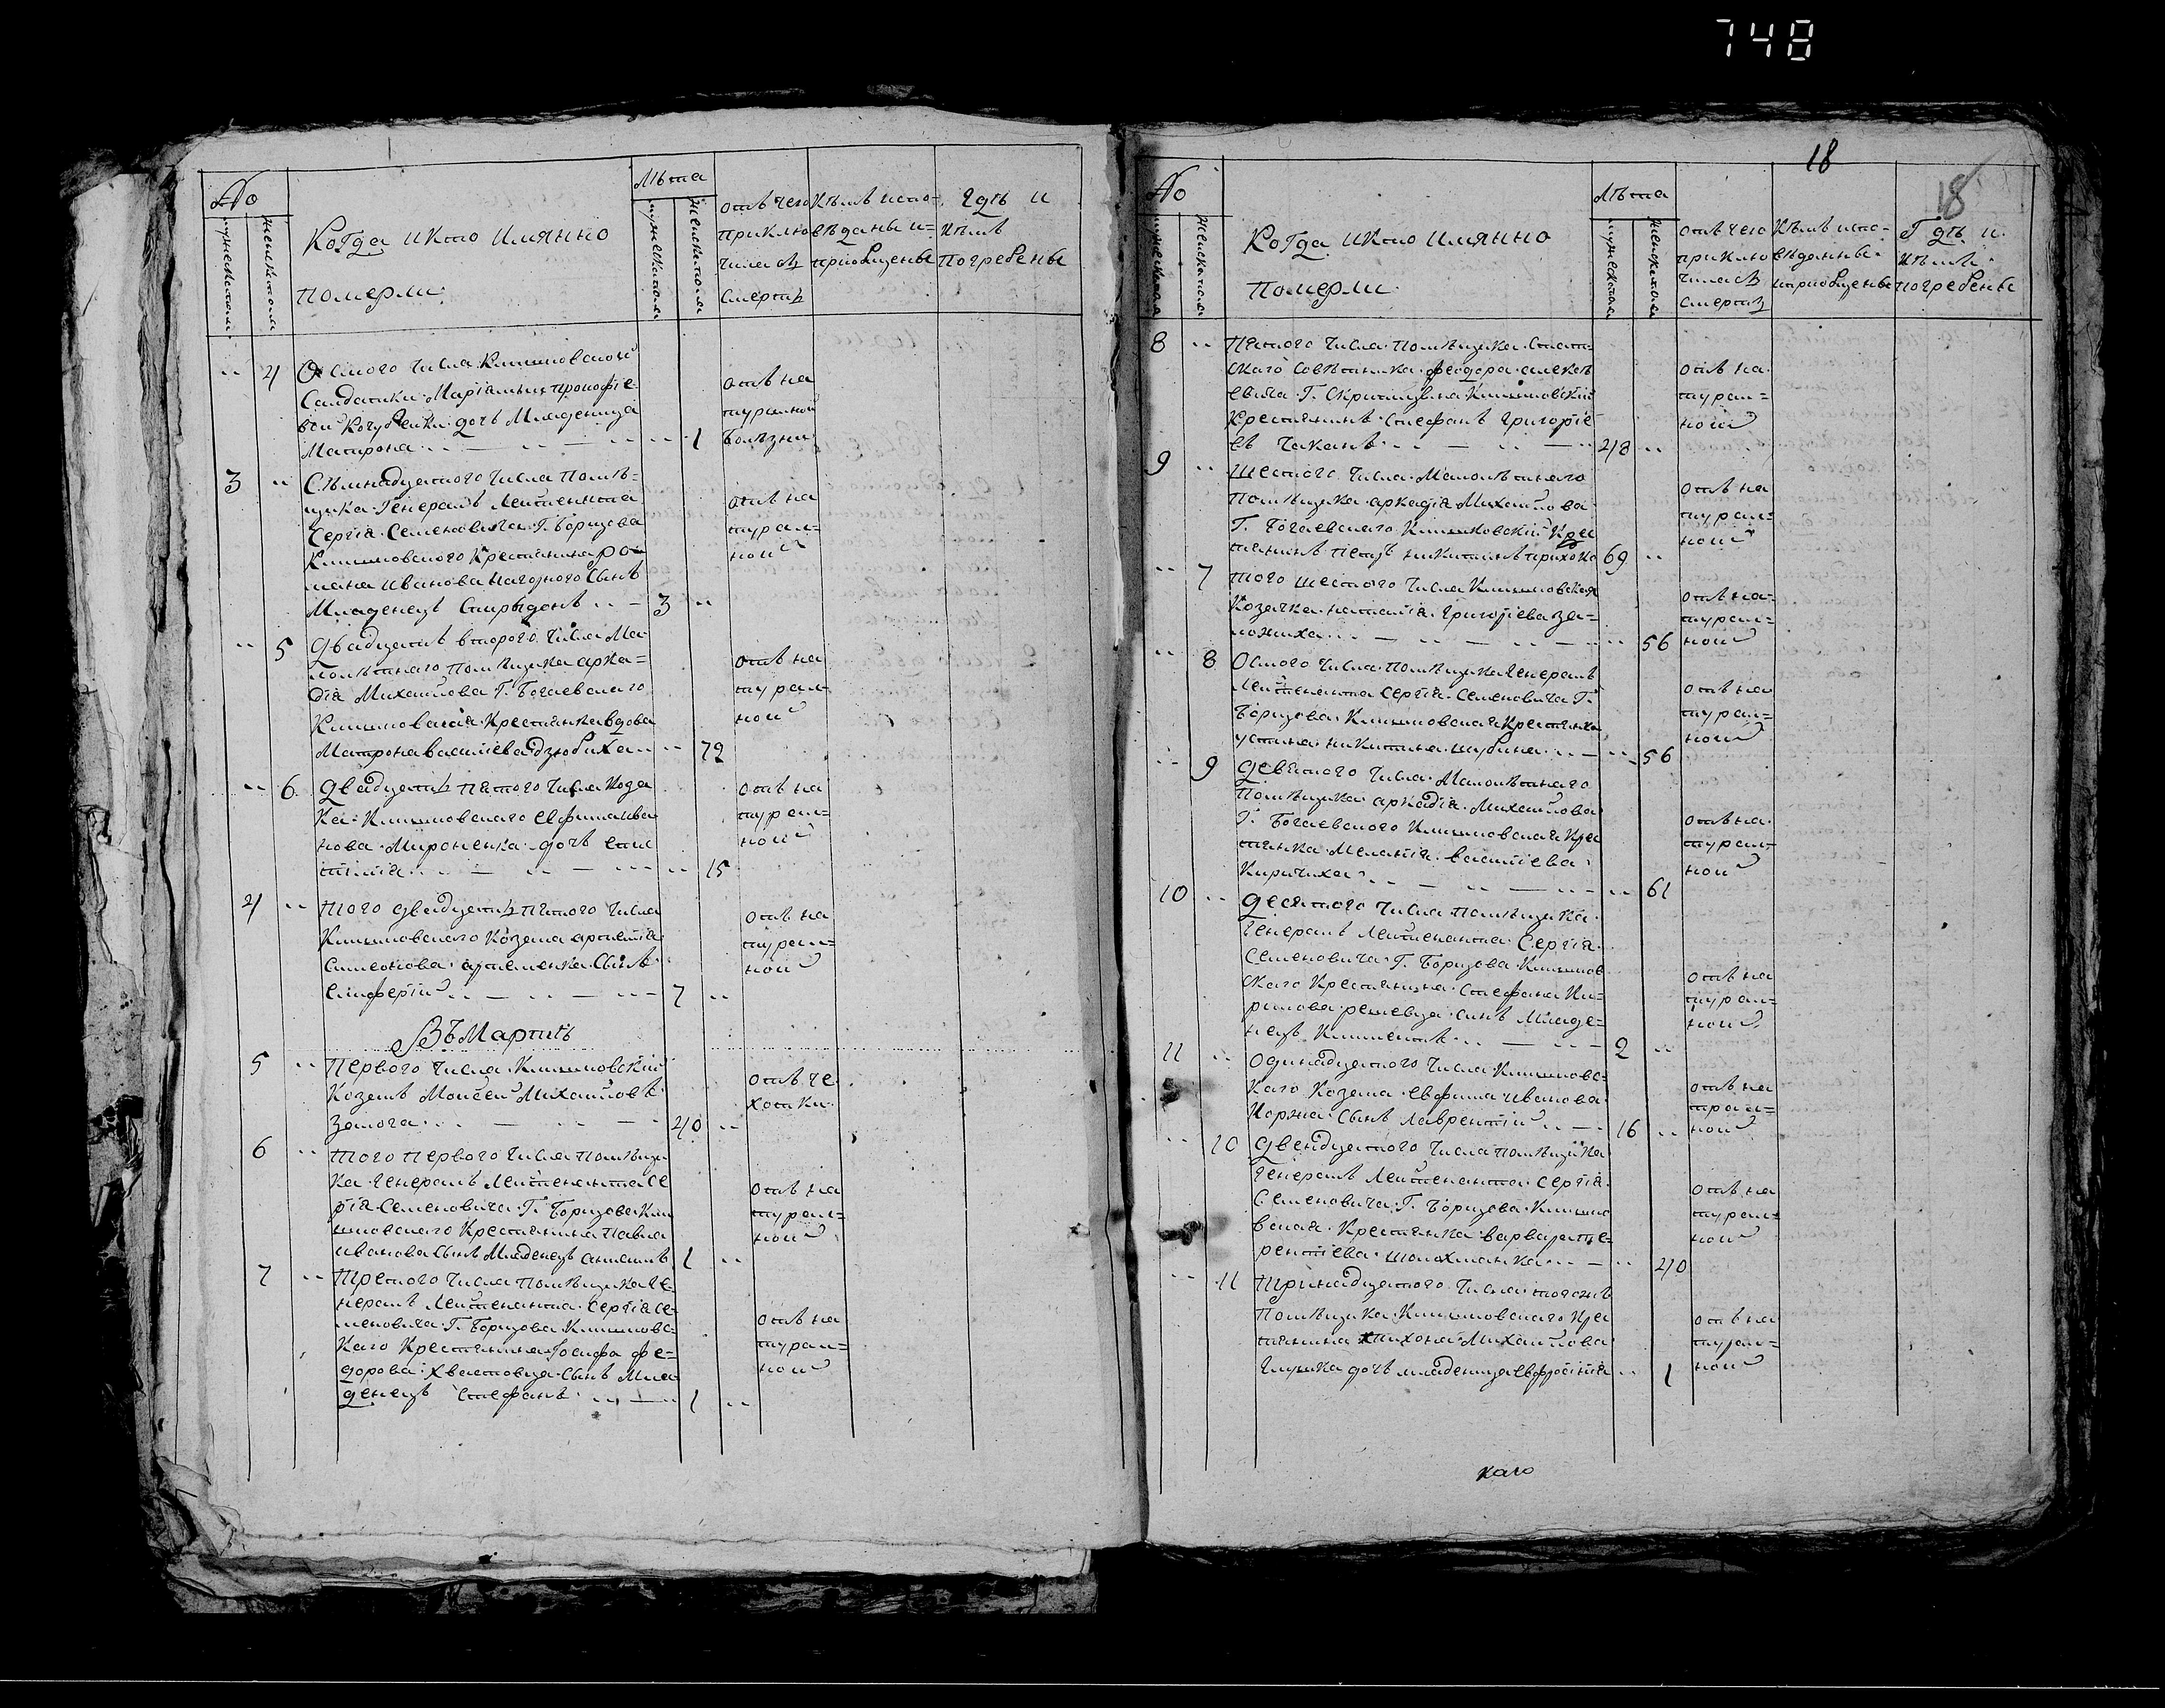 748
No
мужеска пола
женска пола
Когда и кто имянно
померли
лѣта
мужеска пола
женска пола
отъ чего
приклю
чилась
смерть
кѣмъ испо-
вѣданы и
приобщены
гдѣ и
кѣмъ
погребены
4
Осмого числа Климовской
Салдатки Маріамны Прокофіе-
вой дочь младеница
Матрона
1
отъ на
туралной
болѣзни
3
Семнадцатого числа помѣ-
щика Генералъ Лейтенанта
Сергія Семеновича Г. Борщова
Климовского крестянина Ро
мана Иванова Нагорного сынъ
младенецъ Спиридонъ
3
отъ на
турал=
ной
5
Двадцать второго числа Ма-
лолѣтнаго помѣщика Арка=
дія Михайлова Г. Богаевского
Климовская крестянка вдова
Матрона Васіліева Дзюбиха
72
отъ на
турал-
ной
6
Двадцать пятого числа Коза
ка Климовского Евфима Ива
нова Мироненка дочь
15
отъ на
турал=
ной
4
Того двадцать пятого числа
Климовского Козака
Симеонова Артеменка сынъ
7
отъ на
турал=
ной
Въ Мартѣ
5
Первого числа Климовский
Козакъ Моисей Михайловъ
Залога
40
отъ че
хотки
6
Того первого числа помѣщи
ка Генералъ Лейтенанта Се
ргія Семеновича Г. Борщова Кли
мовского крестянина Павла
Иванова сынъ младенецъ
1
отъ на
турал=
ной
7
Третого числа помѣщика Ге-
нералъ Лейтенанта Сергія Се-
меновича Г. Борщова Климовс=
каго крестянина Іосифа Фе-
дорова Хвастовца сынъ мла
денецъ Стефанъ
1
отъ на
турал=
ной
18
18
No
мужеска пола
женска пола
Когда и кто имянно
померли
лѣта
мужеска пола
женска пола
отъ чего
приклю
чилась
смерть
кѣмъ испо-
вѣданны
и приобщены
Гдѣ и
кѣмъ
погребены
8
Пятого числа помѣщика Стат=
скаго Совѣтника Феодора Алексѣ
евича Г. Климовский
крестянинъ Стефанъ Григоріе
въ Чаканъ
48
отъ на
турал=
ной
9
Шестого числа Малолѣтнаго
помѣщика Аркадія Михайлова
Г. Богаевского Климовский крес
тянинъ Петръ Никитинъ
69
отъ на
турал=
ной
7
Того шестого числа Климовская
Козачка Наталія Григоріева За=
ложиха
56
отъ на=
турал=
ной
8
Осмого числа помѣщика Генералъ
Лейтенанта Сергія Семеновича Г.
Борщова Климовская крестянка
Устина Никитина
56
отъ на
турал=
ной
9
Девятого числа Малолѣтнаго
помѣщика Аркадія Михайлова
Г. Богаевского Климовская крес
тянка Меланія Васіліева
Киричиха
61
отъ на
турал=
ной
10
Десятого числа помѣщика
Генералъ Лейтенанта Сергія
Семеновича Г. Борщова Климов
скаго крестянина Стефана Ки=
рилова сынъ младе=
нецъ Климентъ
2
отъ на
турал=
ной
11
Одинадцатого числа Климовс=
каго Козака Евфима Иванова
Коржа сынъ Лаврентій
16
отъ на
трал=
ной
10
Двенадцатого числа помѣщика
Генералъ Лейтенанта Сергія
Семеновича Г. Борщова Климо
вская крестянка Варвара Те-
рентіева
40
отъ на
турал=
ной
11
Тринадцатого числа тогожъ
помѣщика Климовского крес
тянина Тихона Михайлова
Глушка дочь младеница Евфросінія
1
отъ на
турал=
ной
каго